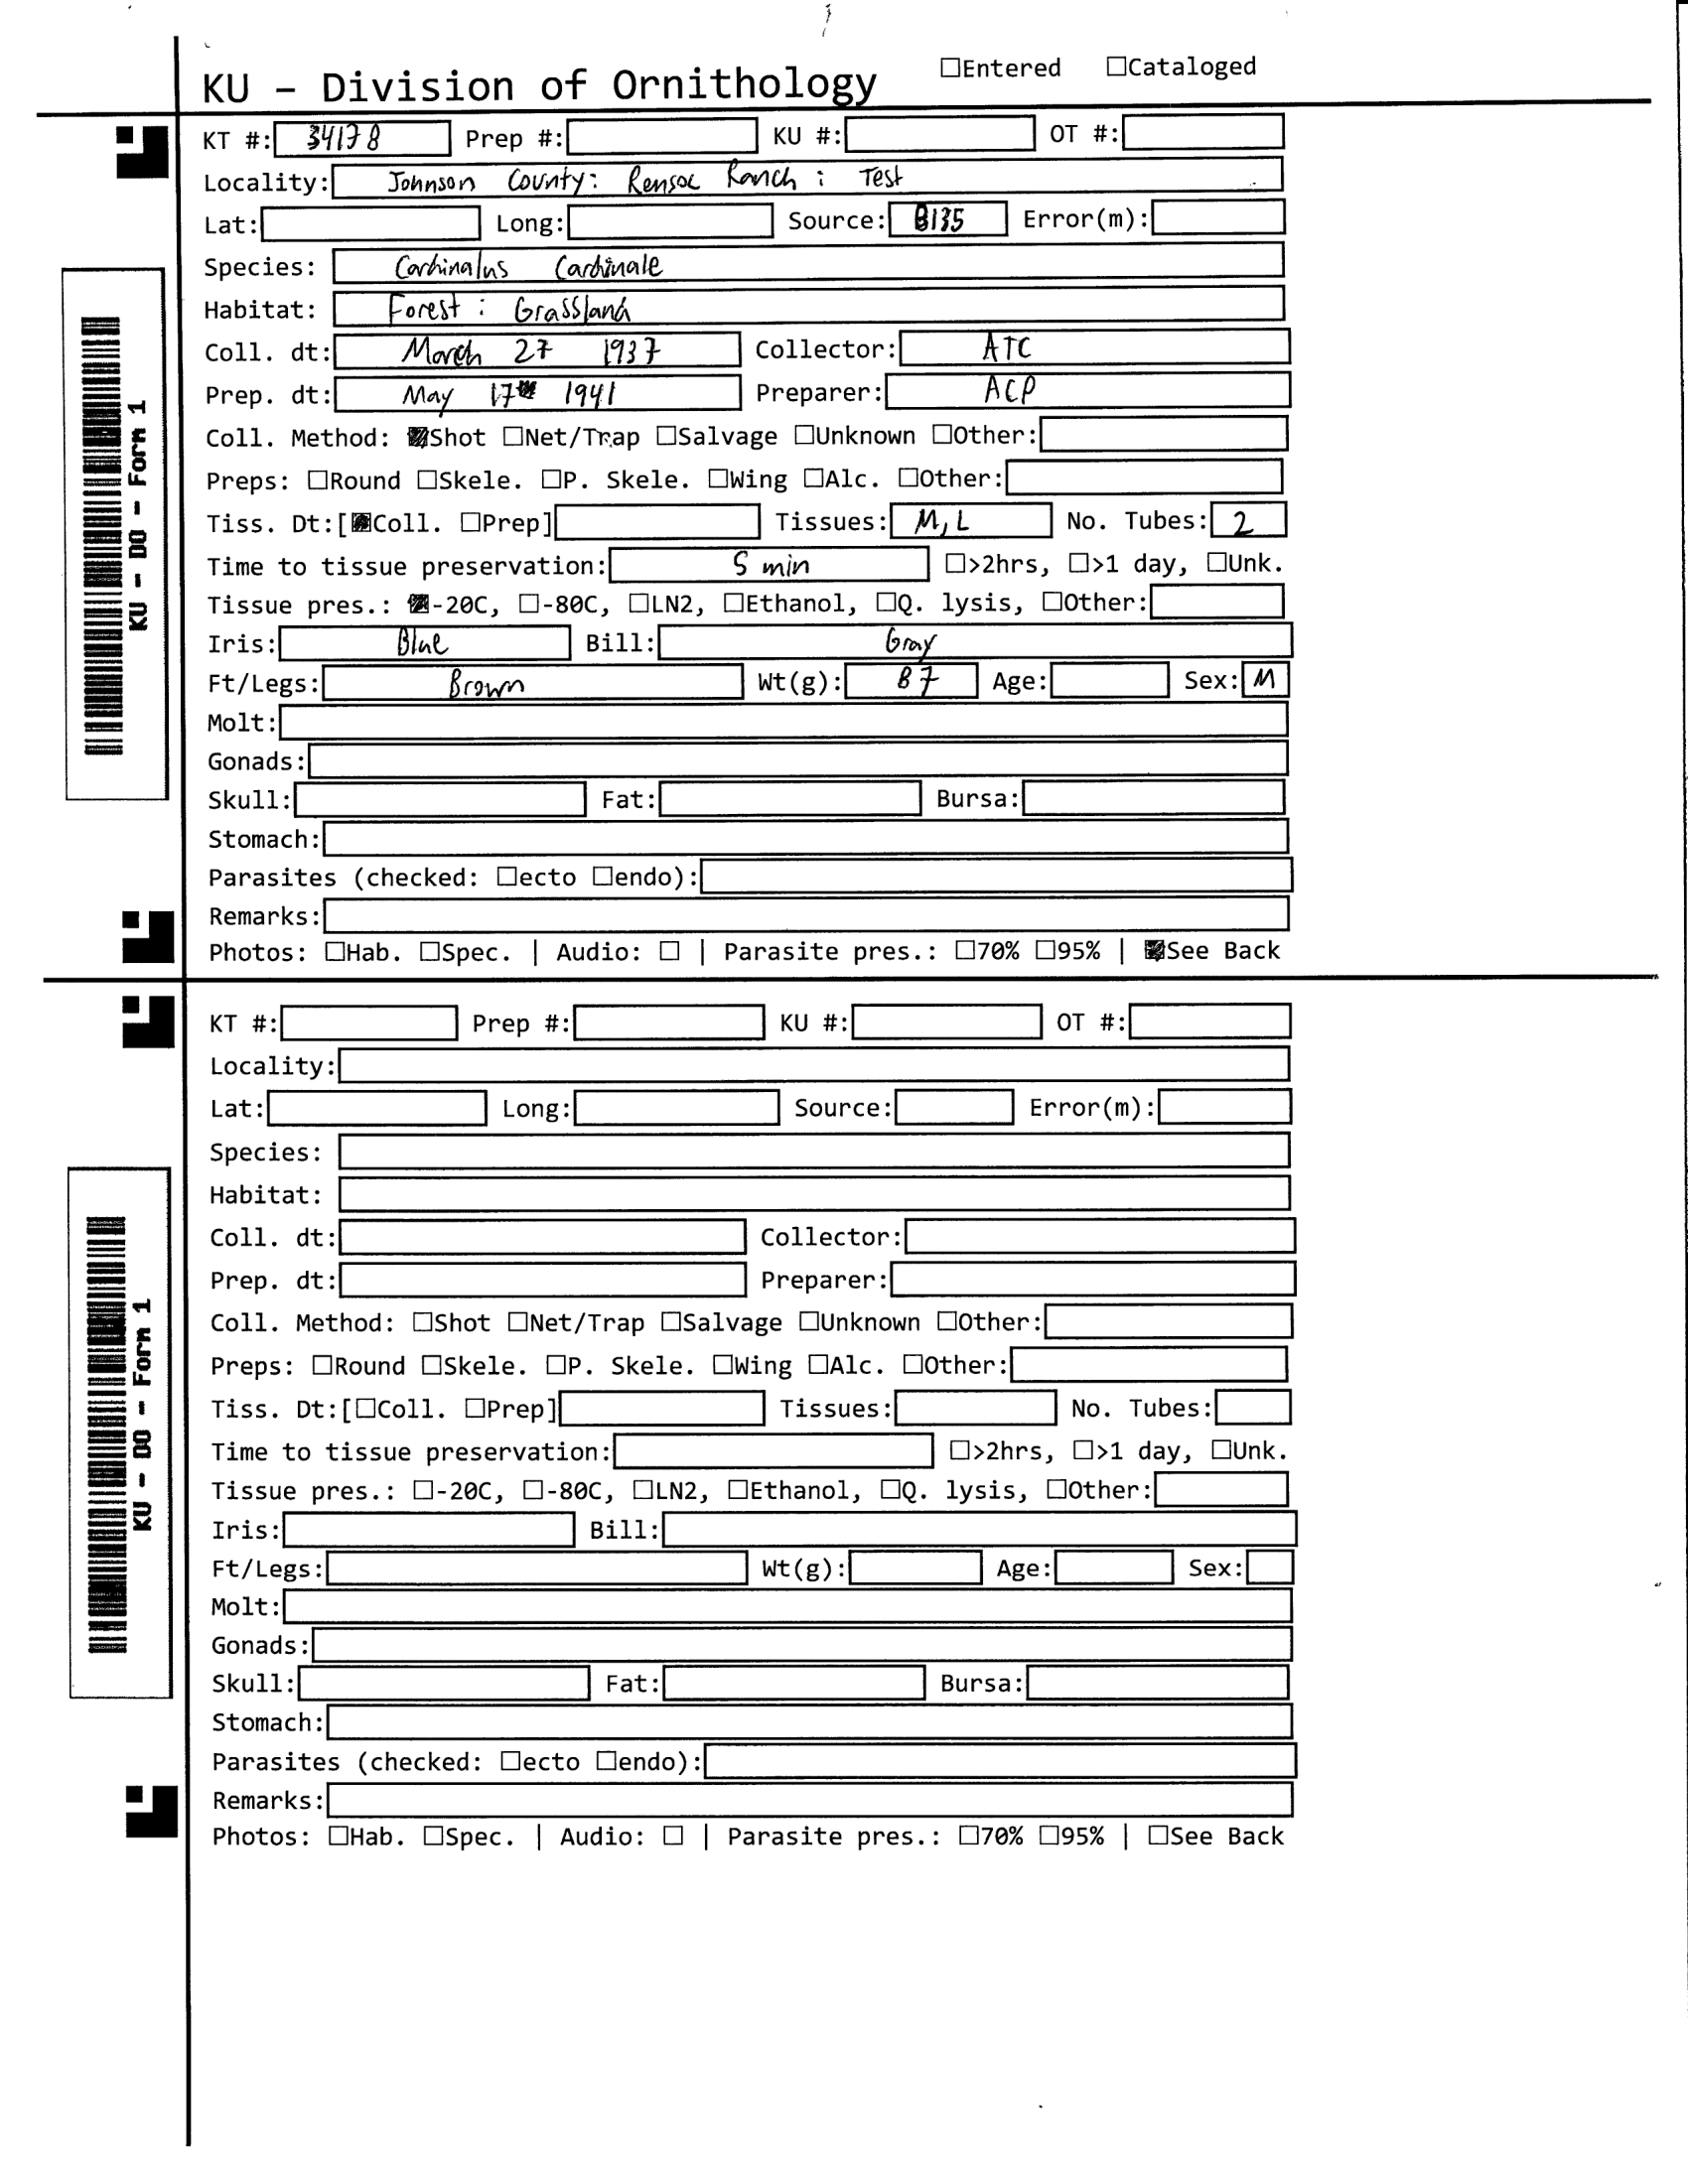 KU – Division of Ornithology ☐Entered ☐Cataloged
KT #: 34178 Prep #: KU #: OT #:
Locality: Johnson County: Rensoc Ranch : Test
Lat: Long: Source: B135 Error(m):
Species: Cardinalus Cardinale
Habitat: Forest : Grassland
Coll. dt: March 27 1937 Collector: ATC
Prep. dt: May 17th 1941 Preparer: ACP
Coll. Method: ☒Shot ☐Net/Trap ☐Salvage ☐Unknown ☐Other:
Preps: ☐Round ☐Skele. ☐P. Skele. ☐Wing ☐Alc. ☐Other:
Tiss. Dt:[☒Coll. ☐Prep] Tissues: M, L No. Tubes: 2
Time to tissue preservation: 5 min ☐>2hrs, ☐>1 day, ☐Unk.
Tissue pres.: ☒-20C, ☐-80C, ☐LN2, ☐Ethanol, ☐Q. lysis, ☐Other:
Iris: Blue Bill: Gray
Ft/Legs: Brown Wt(g): 87 Age: Sex: M
Molt:
Gonads:
Skull: Fat: Bursa:
Stomach:
Parasites (checked: ☐ecto ☐endo):
Remarks:
Photos: ☐Hab. ☐Spec. | Audio: ☐ | Parasite pres.: ☐70% ☐95% | ☒See Back
KU - DO - Form 1
KT #: Prep #: KU #: OT #:
Locality:
Lat: Long: Source: Error(m):
Species:
Habitat:
Coll. dt: Collector:
Prep. dt: Preparer:
Coll. Method: ☐Shot ☐Net/Trap ☐Salvage ☐Unknown ☐Other:
Preps: ☐Round ☐Skele. ☐P. Skele. ☐Wing ☐Alc. ☐Other:
Tiss. Dt:[☐Coll. ☐Prep] Tissues: No. Tubes:
Time to tissue preservation: ☐>2hrs, ☐>1 day, ☐Unk.
Tissue pres.: ☐-20C, ☐-80C, ☐LN2, ☐Ethanol, ☐Q. lysis, ☐Other:
Iris: Bill:
Ft/Legs: Wt(g): Age: Sex:
Molt:
Gonads:
Skull: Fat: Bursa:
Stomach:
Parasites (checked: ☐ecto ☐endo):
Remarks:
Photos: ☐Hab. ☐Spec. | Audio: ☐ | Parasite pres.: ☐70% ☐95% | ☐See Back
KU - DO - Form 1